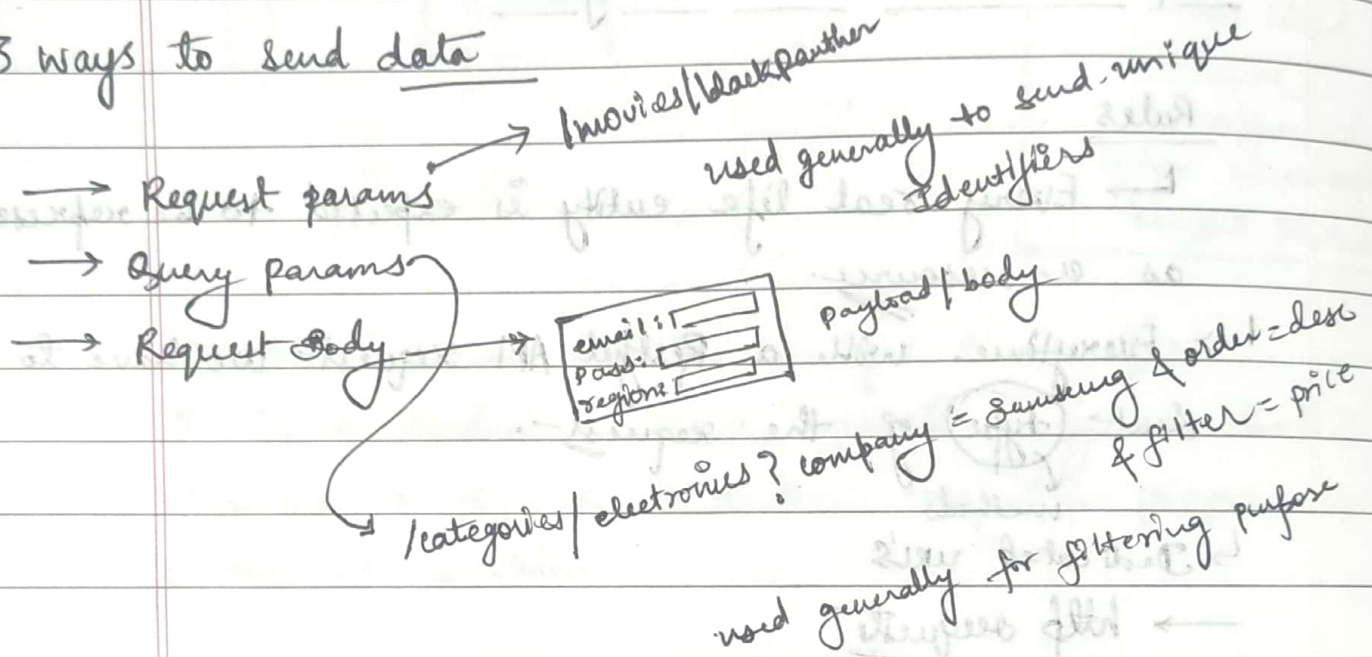 3 ways to send data
/movies/blackpanther
used generally to send unique
Identifiers
→ Request params
→ Query params
→ Request Body →
email:
pass:
region:
payload/body
/categories/electronics? company = Samsung & order=desc
& filter = price
used generally for filtering purpose